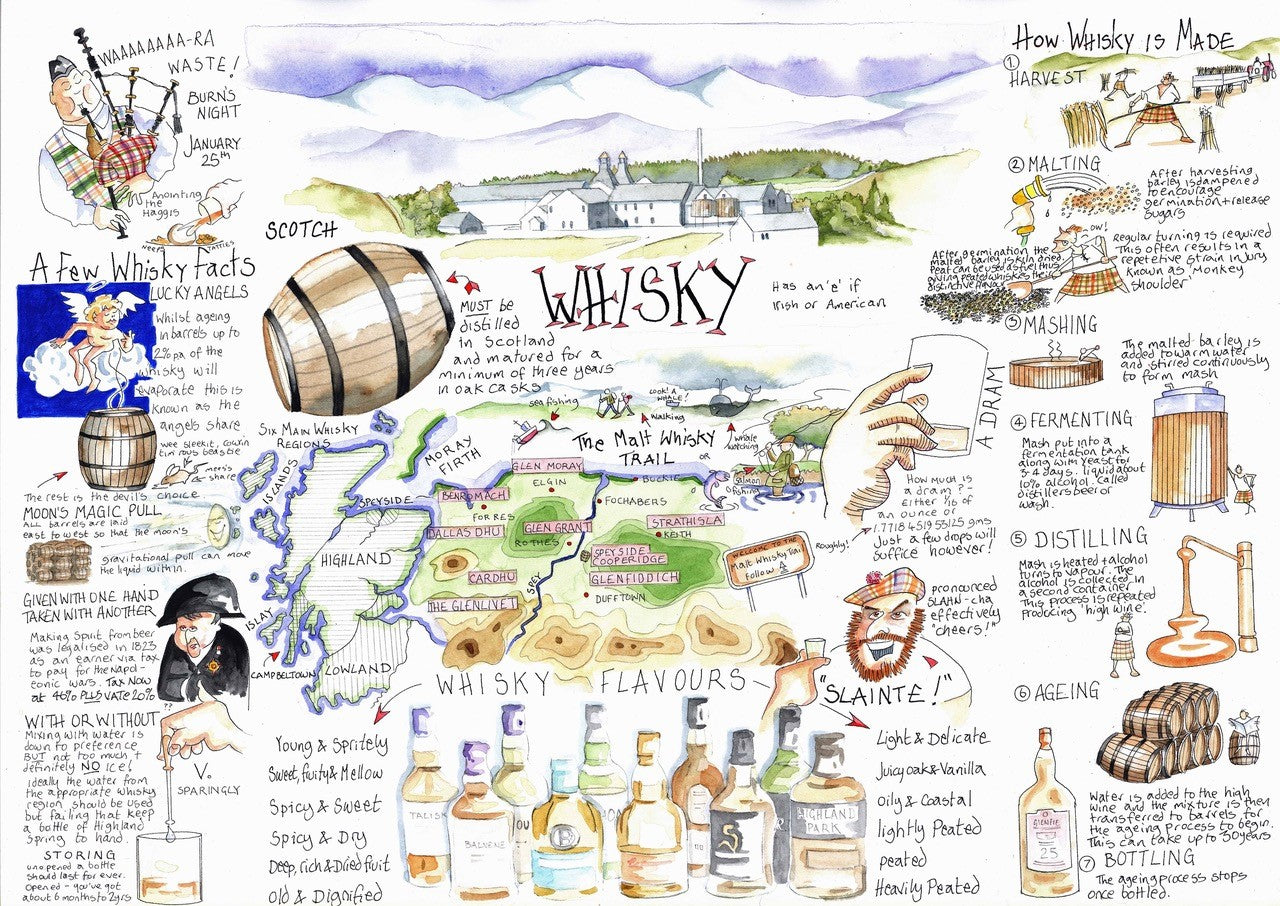 WAAAAAAAA-RA
WASTE!
BURN'S
NIGHT
JANUARY
25th
Anointing
the
Haggis
NEEPS
TATTIES
A Few Whisky Facts
LUCKY ANGELS
Whilst ageing
in barrels up to
2% pa of the
whisky will
evaporate this is
known as the
angels share
wee sleekit, cowrin
tim'rous beastie
mees's
share
The rest is the devil's choice
MOON'S MAGIC PULL
ALL barrels are laid
east to west so that the moon's
gravitational pull can move
the liquid within.
GIVEN WITH ONE HAND
TAKEN WITH ANOTHER
Making Spirit from beer
was legalised in 1823
as an earner via tax
to pay for the Napol-
eonic wars. Tax Now
at 46% PLUS VAT @ 20%
??
WITH OR WITHOUT
Mixing with water is
down to preference
BUT not too much +
definitely NO ice!
Ideally the water from
the appropriate whisky
region should be used
but failing that keep
a bottle of Highland
Spring to hand.
V.
SPARINGLY
STORING
unopened a bottle
should last for ever.
Opened - you've got
about 6 months to 2yrs
SCOTCH
MUST be
distilled
in Scotland
and matured for a
minimum of three years
in oak casks
WHISKY
Has an 'e' if
Irish or American
sea fishing
Walking
look! A
WHALE!
whale
watching
The Malt Whisky
TRAIL
OR
salmon
fishing
A DRAM
HOW MUCH IS
a dram? -
either 1/16 of
an ounce or
1.7718451955125 gms
Just a few drops will
suffice however!
Roughly!
Six Main Whisky
REGIONS
ISLANDS
SPEYSIDE
HIGHLAND
ISLAY
CAMPBELTOWN
LOWLAND
MORAY
FIRTH
GLEN MORAY
ELGIN
BUCKIE
BENROMACH
FORRES
FOCHABERS
DALLAS DHU
GLEN GRANT
ROTHES
STRATHISLA
KEITH
SPEYSIDE
COOPERIDGE
CARDHU
GLENFIDDICH
SPEY
DUFFTOWN
THE GLENLIVET
WELCOME TO THE
Malt Whisky Trail
Follow
pronounced
SLAHN-cha
effectively
"cheers!"
"SLAINTE!"
WHISKY FLAVOURS
Young & Spritely
Sweet, fruity & Mellow
Spicy & Sweet
Spicy & Dry
Deep, rich & Dried fruit
Old & Dignified
Light & Delicate
Juicy oak & Vanilla
Oily & Coastal
lightly Peated
peated
Heavily Peated
TALISK
BALVENIE
OU
B
S
HIGHLAND
PARK
How Whisky is Made
1
HARVEST
2 MALTING
After harvesting
barley is dampened
to encourage
germination + release
sugars
OW!
Regular turning is required
This often results in a
repetetive strain injury
known as 'Monkey
shoulder'
After germination the
malted barley is kiln dried.
Peat can be used as fuel thus
giving peated whiskies their
distinctive flavour
3 MASHING
The malted barley is
added to warm water
and stirred continuously
to form mash
4 FERMENTING
Mash put into a
fermentation tank
along with yeast for
3-4 days. liquid about
10% alcohol. called
distillers beer or
wash.
5 DISTILLING
Mash is heated + alcohol
turns to vapour. The
alcohol is collected in
a second container
This process is repeated
producing 'high wine'.
6 AGEING
Water is added to the high
wine and the mixture is then
transferred to barrels for
the ageing process to begin.
This can take up to 50 years
GLENFIE
25
7 BOTTLING
The ageing process stops
once bottled.